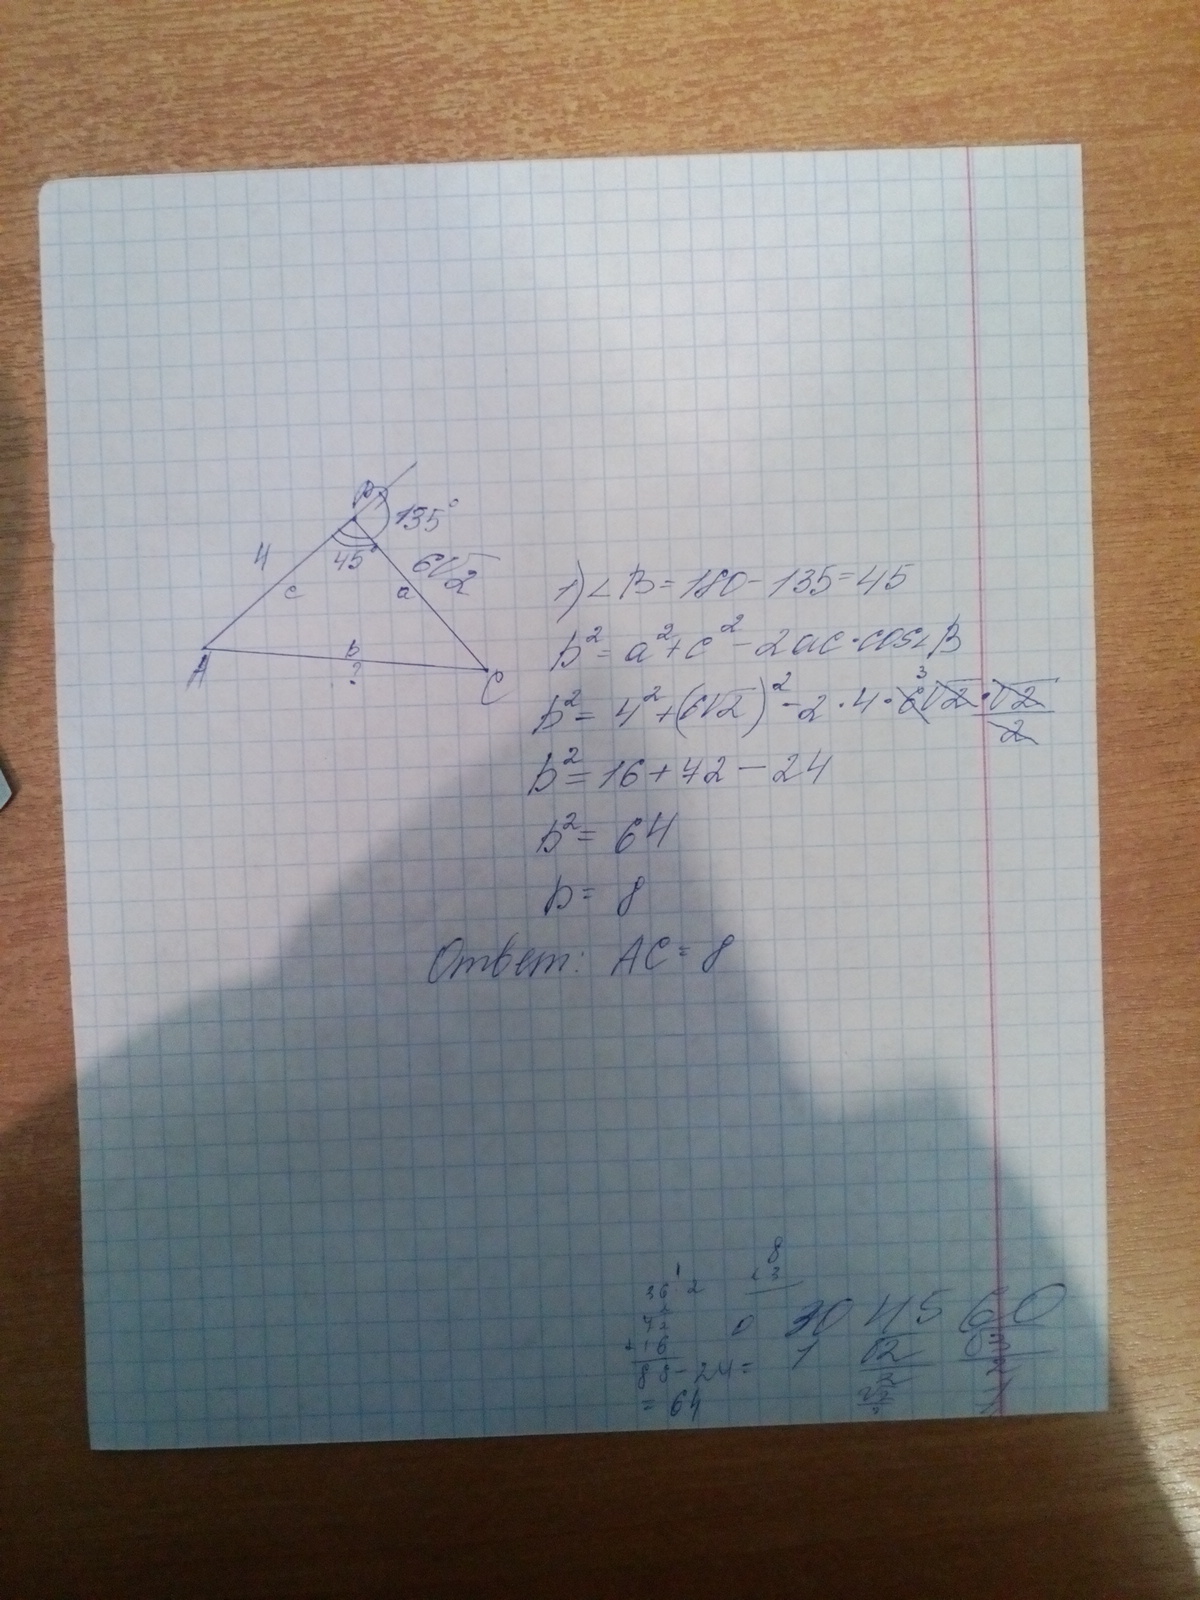 B
135°
4
45°
6√2
c
a
b
?
A
C
1) ∠B = 180 - 135 = 45
b² = a² + c² - 2ac · cos∠B
b² = 4² + (6√2)² - 2 · 4 · 6√2 · √2/2
3
b² = 16 + 72 - 24
b² = 64
b = 8
Ответ: AC = 8
36 · 2
1
8
× 3
2
72
+ 16
88 - 24 =
= 64
0 30 45 60
1 √2/2 √3/2
√2/2